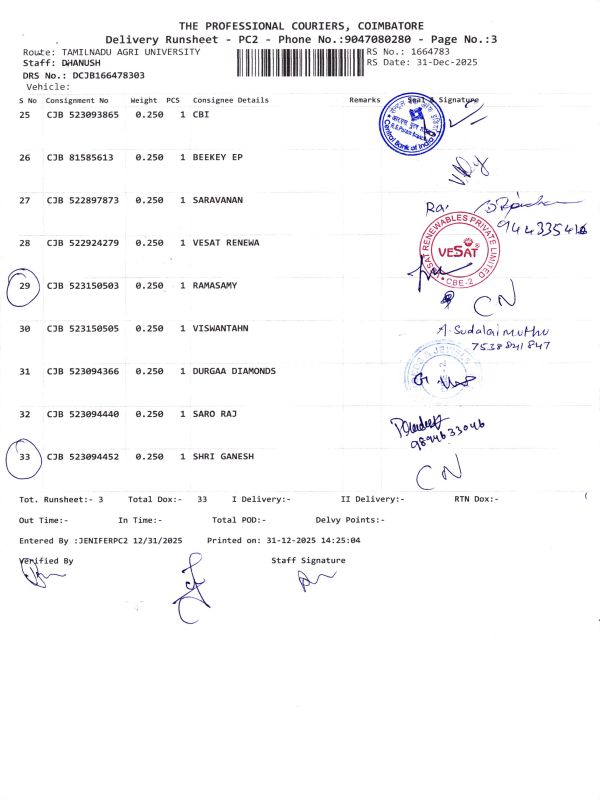 THE PROFESSIONAL COURIERS, COIMBATORE
Delivery Runsheet - PC2 - Phone No.:9047080280 - Page No.:3
Route: TAMILNADU AGRI UNIVERSITY
RS No.: 1664783
Staff: DHANUSH
RS Date: 31-Dec-2025
DRS No.: DCJB166478303
Vehicle:
S No Consignment No Weight PCS Consignee Details Remarks Seal & Signature
25 CJB 523093865 0.250 1 CBI
Central Bank of India
26 CJB 81585613 0.250 1 BEEKEY EP
27 CJB 522897873 0.250 1 SARAVANAN
28 CJB 522924279 0.250 1 VESAT RENEWA
VESAT RENEWABLES PRIVATE LIMITED
VeSAT
CBE-2
29 CJB 523150503 0.250 1 RAMASAMY CN
30 CJB 523150505 0.250 1 VISWANTAHN A. Sudalaimuthu
7538841847
31 CJB 523094366 0.250 1 DURGAA DIAMONDS
32 CJB 523094440 0.250 1 SARO RAJ
9894633046
33 CJB 523094452 0.250 1 SHRI GANESH CN
Tot. Runsheet:- 3 Total Dox:- 33 I Delivery:- II Delivery:- RTN Dox:-
Out Time:- In Time:- Total POD:- Delvy Points:-
Entered By :JENIFERPC2 12/31/2025 Printed on: 31-12-2025 14:25:04
Verified By Staff Signature